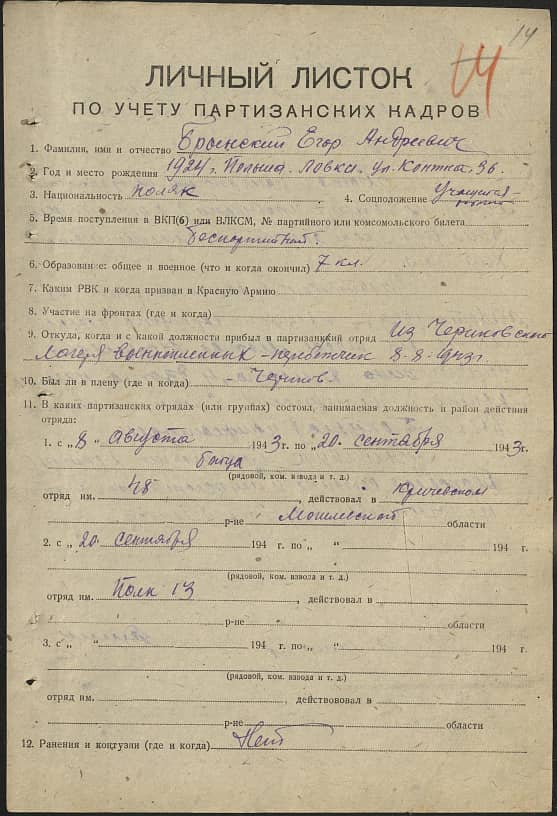 14
14
ЛИЧНЫЙ ЛИСТОК
ПО УЧЕТУ ПАРТИЗАНСКИХ КАДРОВ
1. Фамилия, имя и отчество Брынский Егор Андреевич
2. Год и место рождения 1924 г. Польша. Ловка. ул. 36.
3. Национальность поляк 4. Соцположение учащийся
5. Время поступления в ВКП(б) или ВЛКСМ, № партийного или комсомольского билета
беспартийный.
6. Образование: общее и военное (что и когда окончил) 7 кл.
7. Каким РВК и когда призван в Красную Армию
8. Участие на фронтах (где и когда)
9. Откуда, когда и с какой должности прибыл в партизанский отряд Из Чериковского
Лагеря военнопленных - перебежчик 8-8-1943г
10. Был ли в плену (где и когда) - Чериков
11. В каких партизанских отрядах (или группах) состоял, занимаемая должность и район действия
отряда:
1. с „8 августа 1943 г. по „20 сентября 1943 г.
боец
(рядовой, ком. взвода и т. д.)
отряд им. 48, действовал в Кричевском
р-не Могилевской области
2. с „20 сентября 194 г. по „ “ 194 г.
(рядовой, ком. взвода и т. д.)
отряд им. Полк 13, действовал в
р-не области
3. с „ “ 194 г. по „ “ 194 г.
(рядовой, ком. взвода и т. д.)
отряд им. , действововал в
р-не области
12. Ранения и контузии (где и когда) Нет